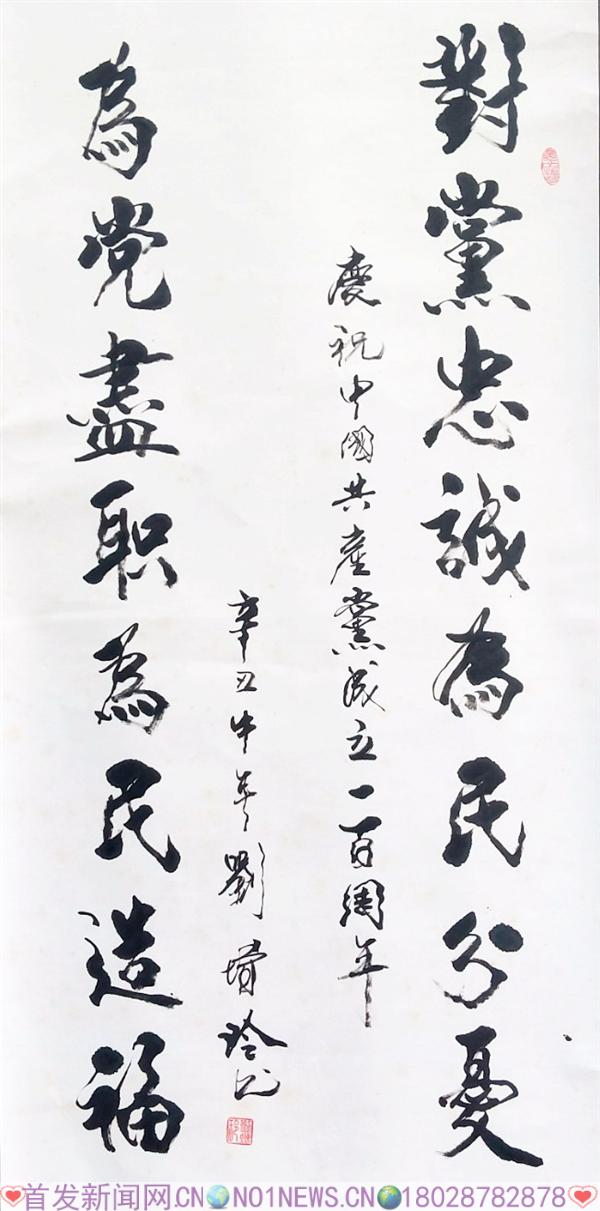 對黨忠誠為民分憂
慶祝中國共產黨成立一百週年
辛丑牛年劉增玲书
為党盡职為民造福
首发新闻网.CN NO1NEWS.CN 18028782878